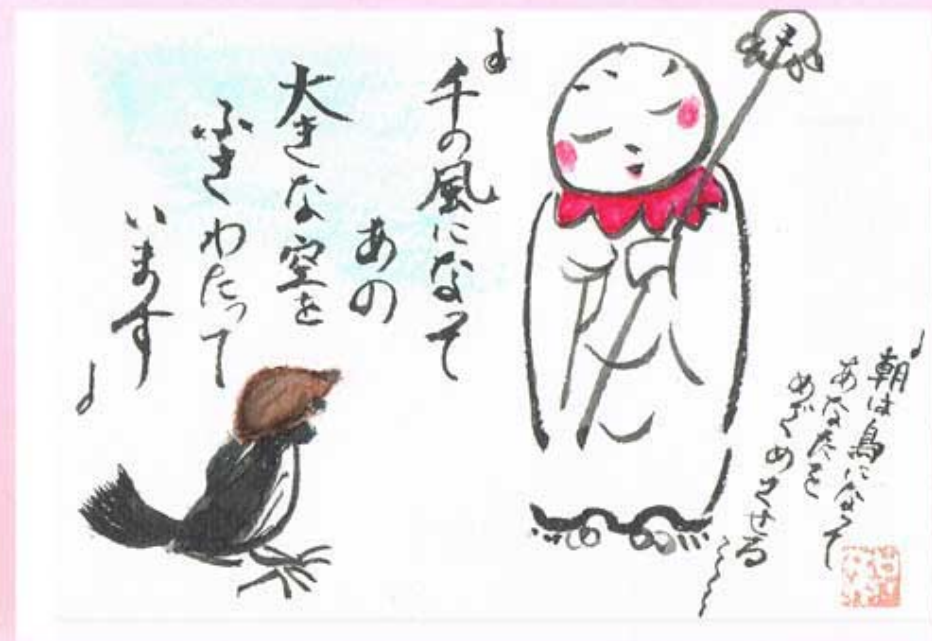 千の風になって
あの
大きな空を
ふきわたって
います
朝は鳥になって
あなたを
めざめさせる